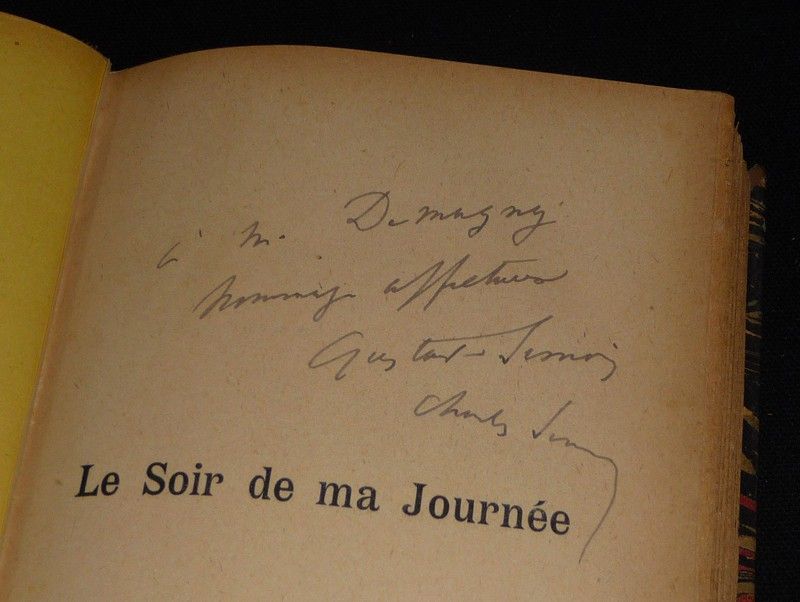 à M. Demagny
hommage affectueux
Gustave Simon
Charles Simon
Le Soir de ma Journée